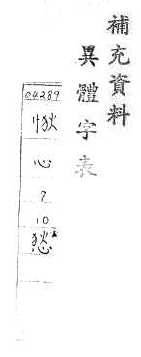 補充資料
異體字表
04289
㤥
心
7
10
愁